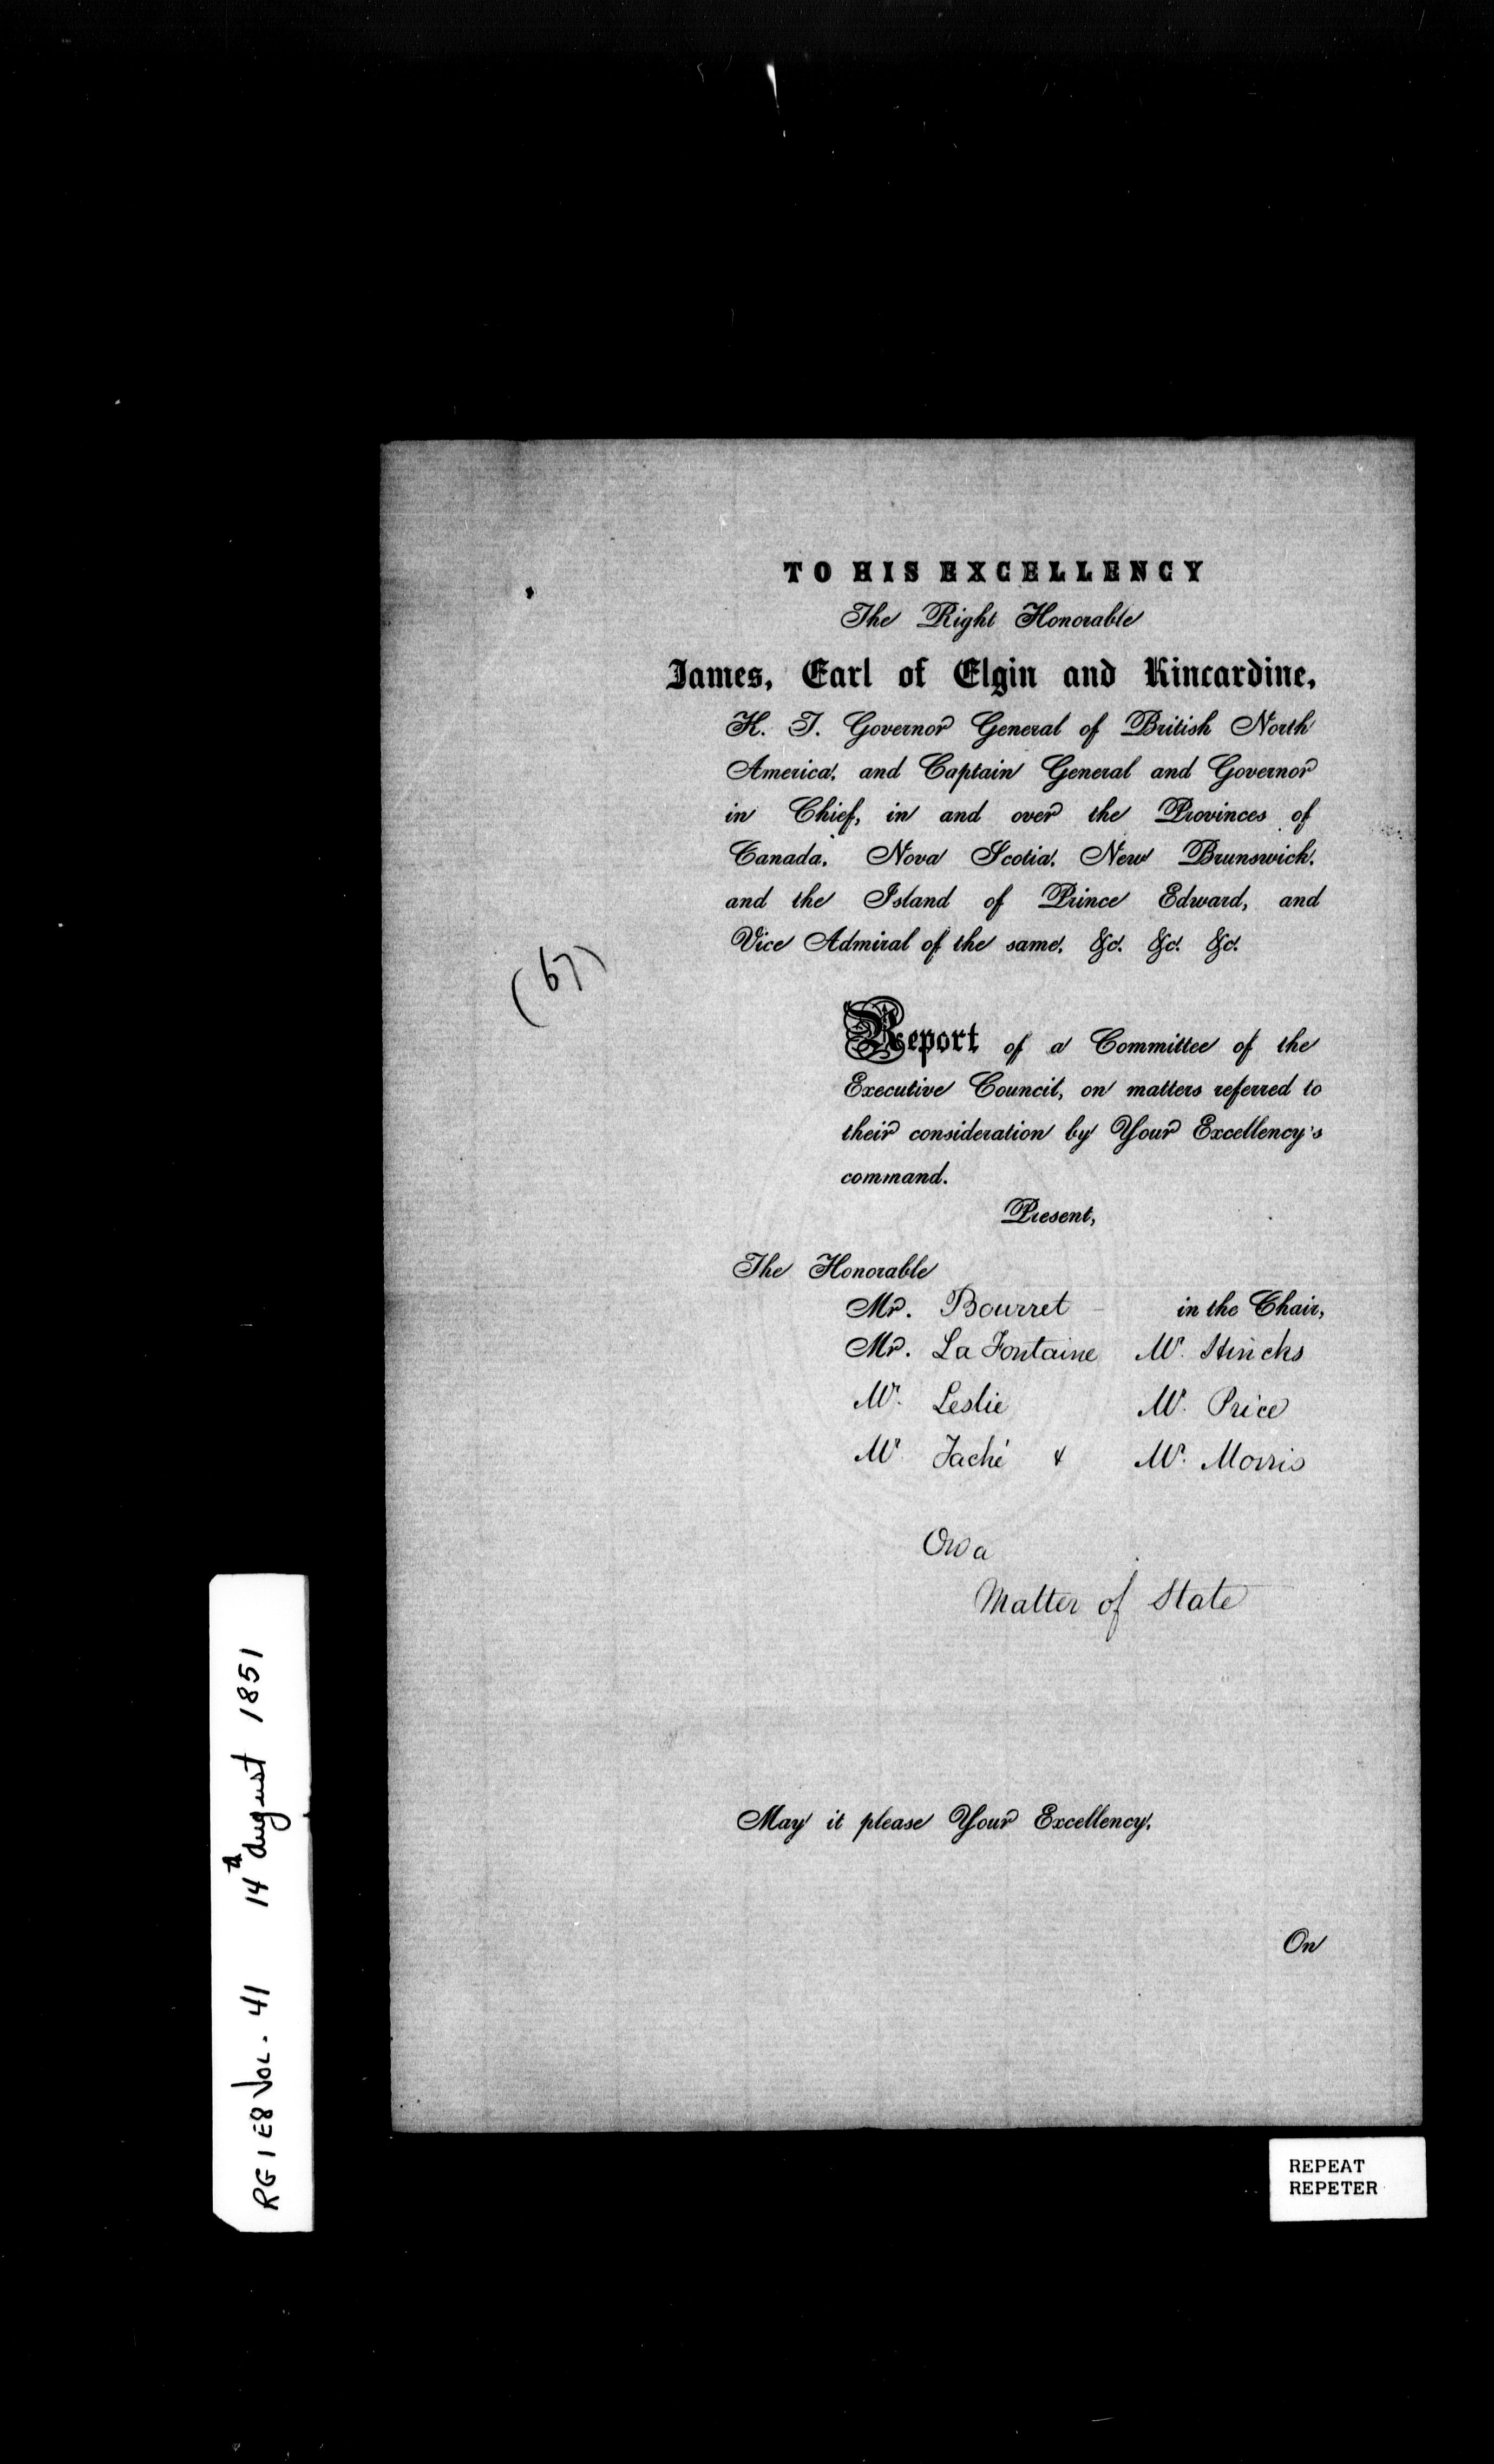 TO HIS EXCELLENCY
The Right Honorable
James, Earl of Elgin and Kincardine,
K. T. Governor General of British North
America, and Captain General and Governor
in Chief, in and over the Provinces of
Canada, Nova Scotia, New Brunswick,
and the Island of Prince Edward, and
Vice Admiral of the same, &c. &c. &c.
(67)
Report of a Committee of the
Executive Council, on matters referred to
their consideration by Your Excellency's
command.
Present,
The Honorable
Mr. Bourret in the Chair,
Mr. La Fontaine Mr. Hincks
Mr. Leslie Mr. Price
Mr. Taché & Mr. Morris
On a
Matter of State
May it please Your Excellency,
On
RG 1 E8 VOL. 41 14th August 1851
REPEAT
REPETER